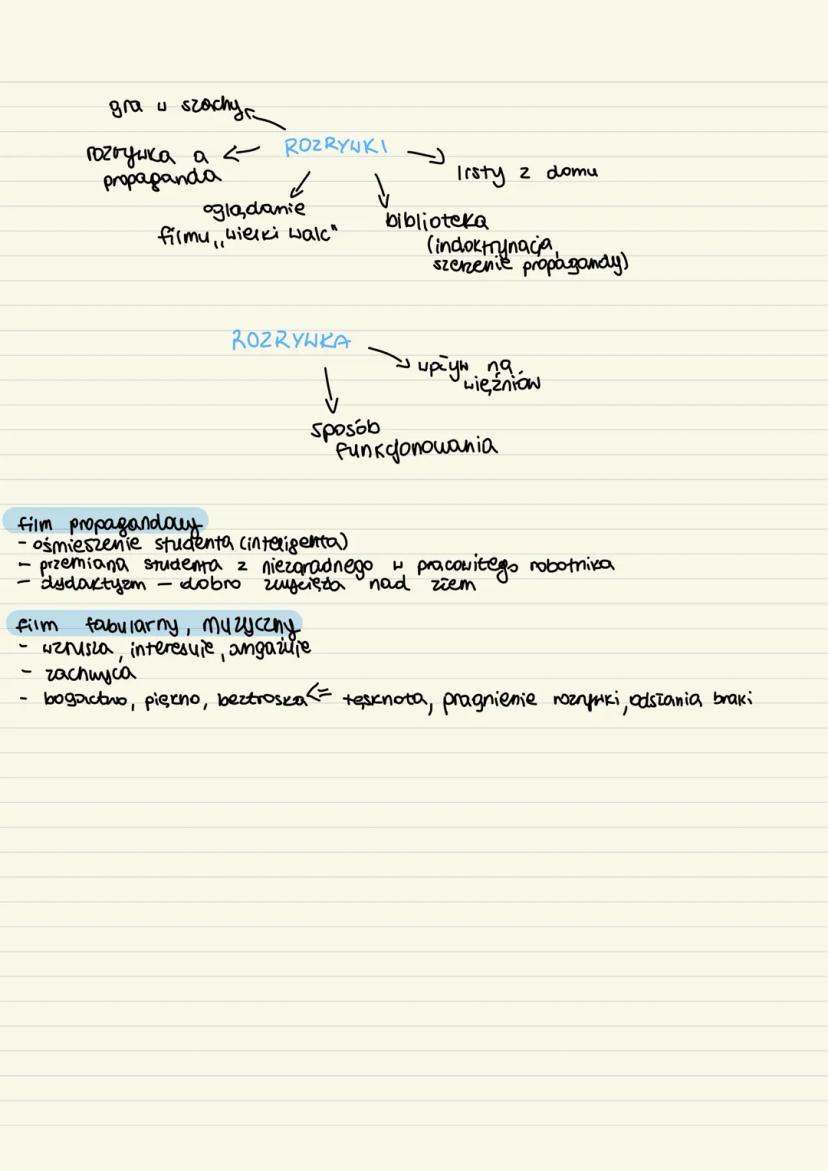 gra w szachy
ROZRYWKI
rozrywka a
propaganda
listy z domu
oglądanie
filmu „Wielki Walc"
biblioteka
(indoktrynacja,
szerzenie propagandy)
ROZRYWKA
wpływ na
więźniów
sposób
funkcjonowania
film propagandowy
- ośmieszenie studenta (inteligenta)
- przemiana studenta z niezaradnego w pracowitego robotnika
- dydaktyzm - dobro zwycięża nad złem
film fabularny, muzyczny
- wzrusza, interesuje, angażuje
- zachwyca
- bogactwo, piękno, beztroska <= tęsknota, pragnienie rozrywki, odsłania braki